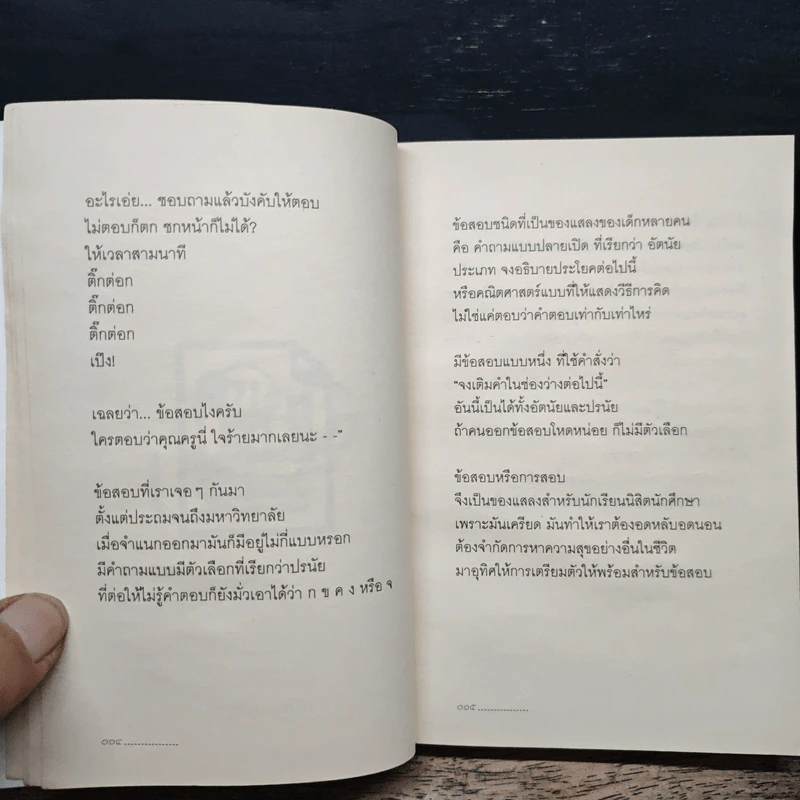 อะไรเอ่ย... ชอบถามแล้วบังคับให้ตอบ
ไม่ตอบก็ตก ชกหน้าก็ไม่ได้?
ให้เวลาสามนาที
ติ๊กต่อก
ติ๊กต่อก
ติ๊กต่อก
เป๊ง!
เฉลยว่า... ข้อสอบไงครับ
ใครตอบว่าคุณครูนี่ ใจร้ายมากเลยนะ - -"
ข้อสอบที่เราเจอๆ กันมา
ตั้งแต่ประถมจนถึงมหาวิทยาลัย
เมื่อจำแนกออกมามันก็มีอยู่ไม่กี่แบบหรอก
มีคำถามแบบมีตัวเลือกที่เรียกว่าปรนัย
ที่ต่อให้ไม่รู้คำตอบก็ยังมั่วเอาได้ว่า ก ข ค ง หรือ จ
๐๑๔
ข้อสอบชนิดที่เป็นของแสลงของเด็กหลายคน
คือ คำถามแบบปลายเปิด ที่เรียกว่า อัตนัย
ประเภท จงอธิบายประโยคต่อไปนี้
หรือคณิตศาสตร์แบบที่ให้แสดงวิธีการคิด
ไม่ใช่แค่ตอบว่าคำตอบเท่ากับเท่าไหร่
มีข้อสอบแบบหนึ่ง ที่ใช้คำสั่งว่า
"จงเติมคำในช่องว่างต่อไปนี้"
อันนี้เป็นได้ทั้งอัตนัยและปรนัย
ถ้าคนออกข้อสอบโหดหน่อย ก็ไม่มีตัวเลือก
ข้อสอบหรือการสอบ
จึงเป็นของแสลงสำหรับนักเรียนนิสิตนักศึกษา
เพราะมันเครียด มันทำให้เราต้องอดหลับอดนอน
ต้องจำกัดการหาความสุขอย่างอื่นในชีวิต
มาอุทิศให้การเตรียมตัวให้พร้อมสำหรับข้อสอบ
๐๑๕